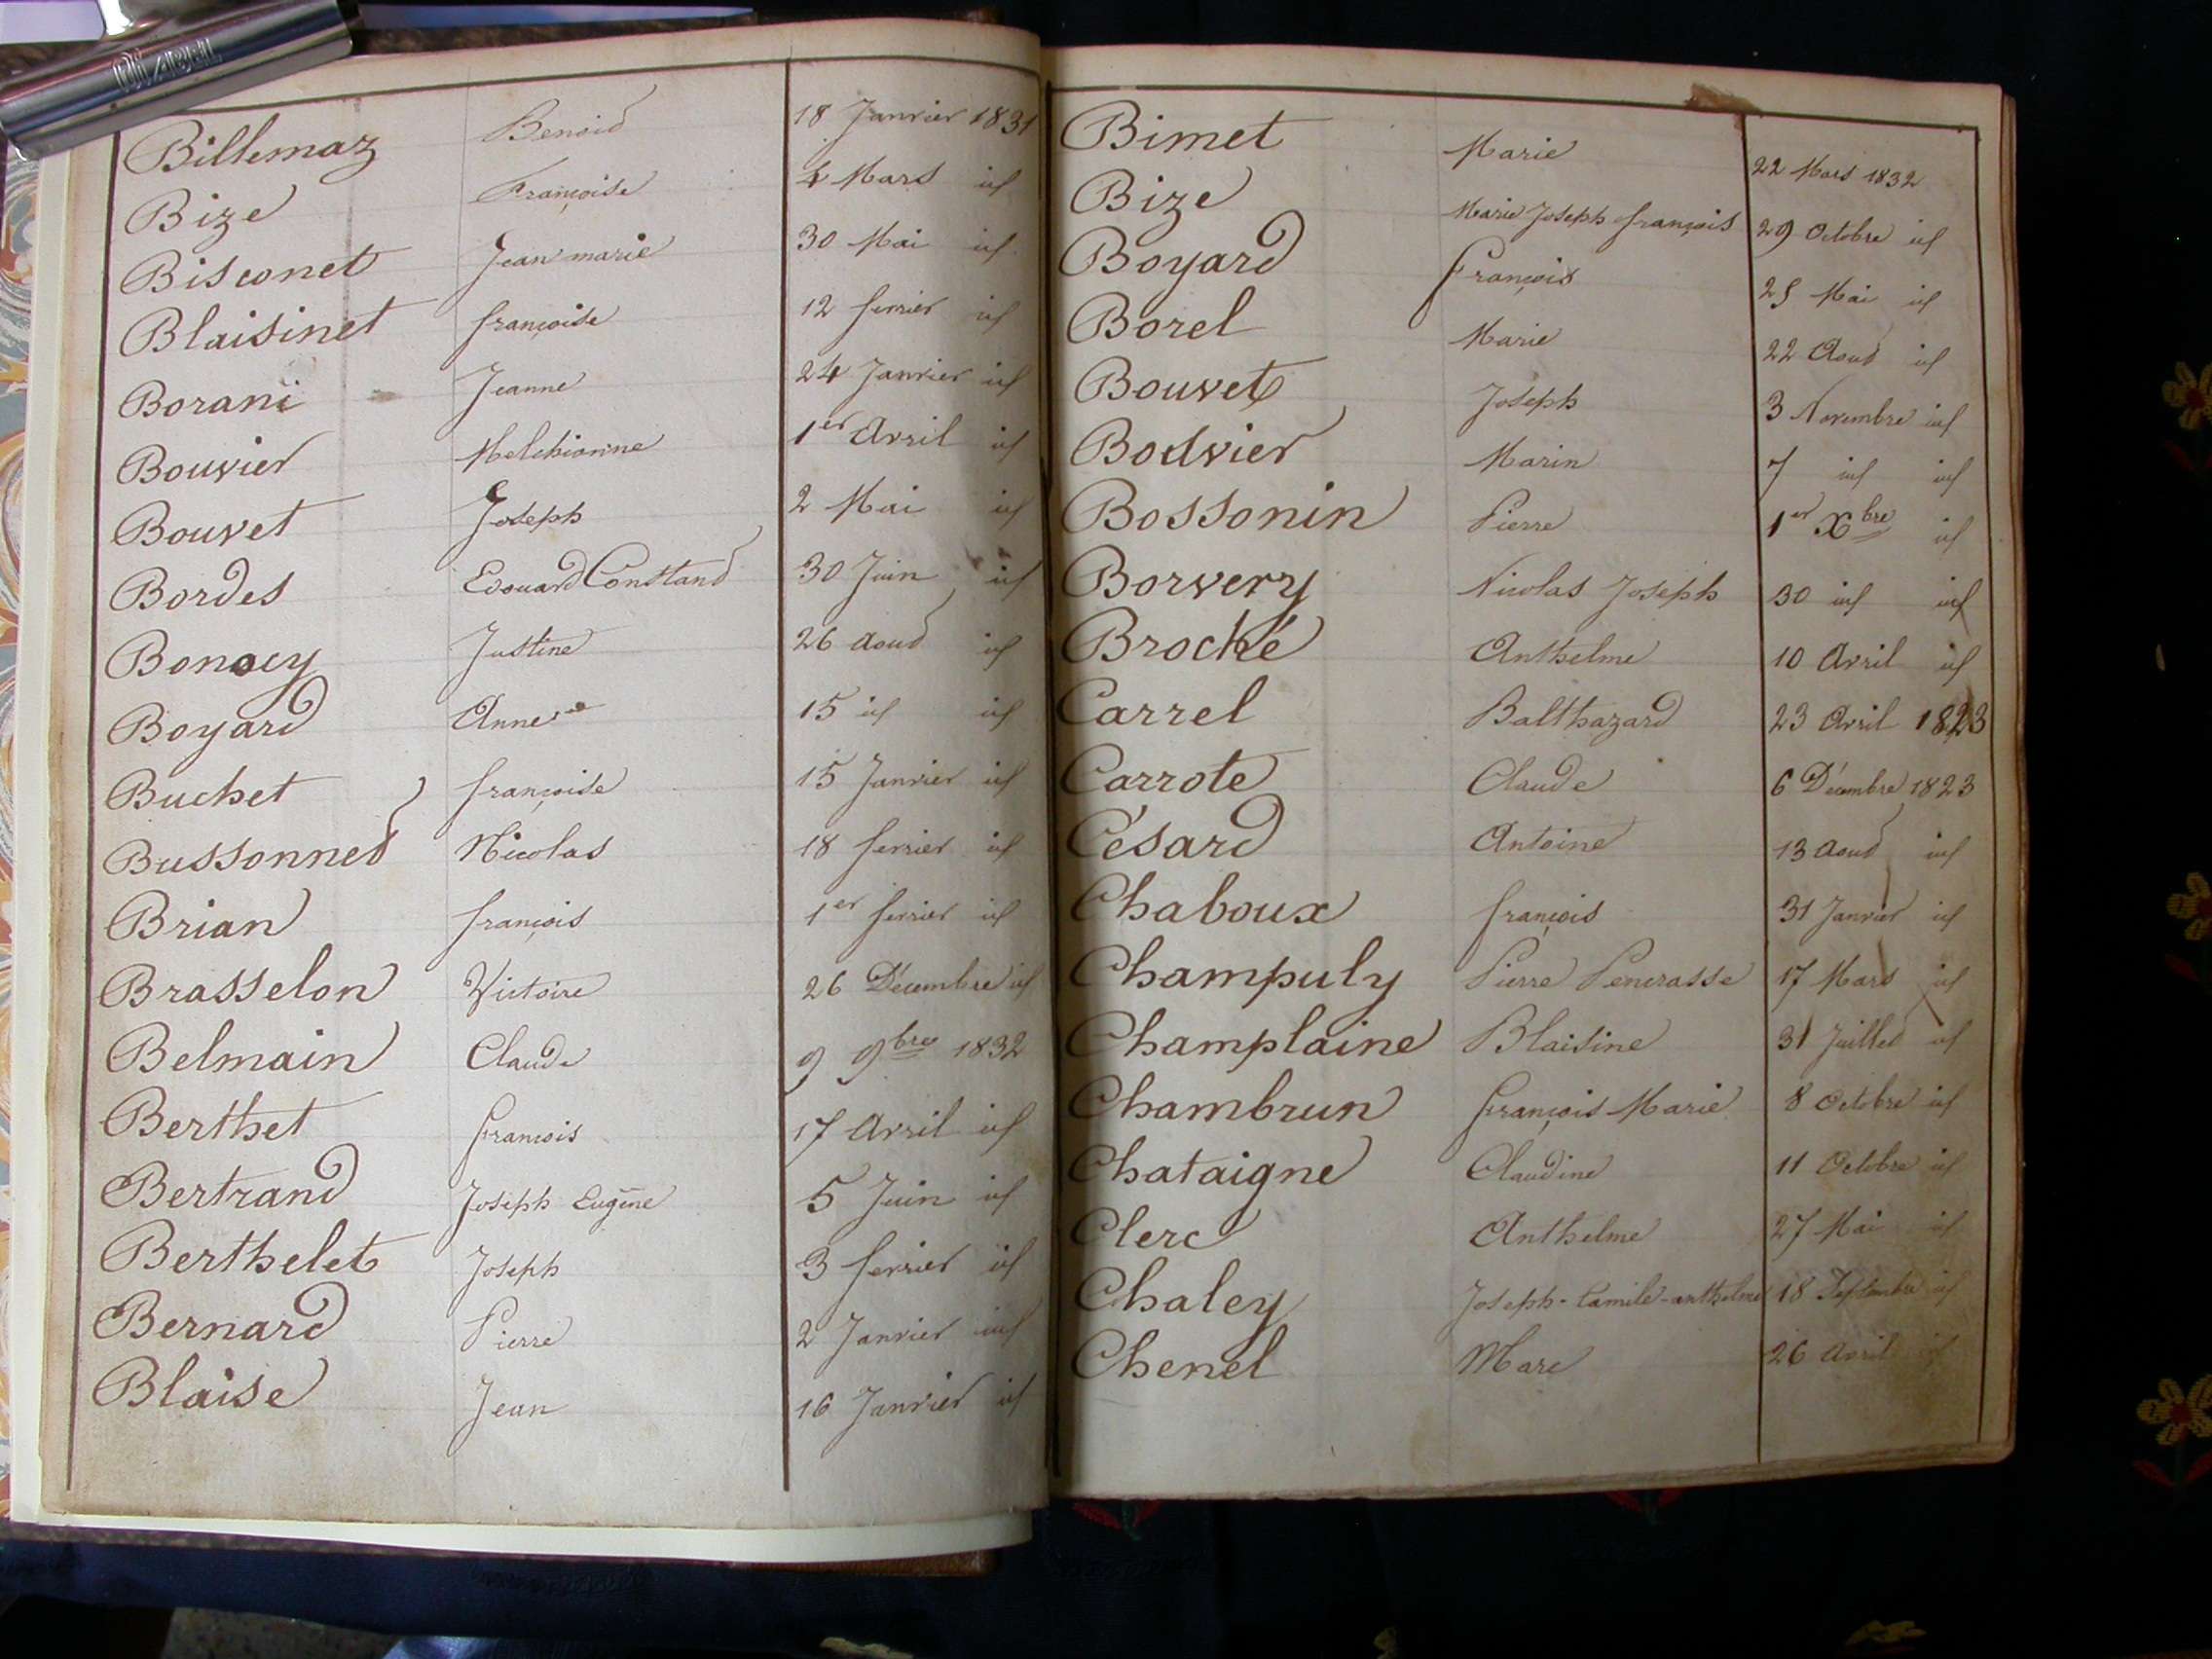 Billemaz Benoid 18 Janvier 1831
Bize Françoise 4 Mars id
Bisconet Jean marie 30 Mai id
Blaisinet françoise 12 fevrier id
Borani Jeanne 24 Janvier id
Bouvier Melchionne 1er Avril id
Bouvet Joseph 2 Mai id
Bordes Edouard Constand 30 Juin id
Bonocy Justine 26 aoud id
Boyard Anne 15 id id
Buchet françoise 15 Janvier id
Bussonned Nicolas 18 fevrier id
Brian françois 1er fevrier id
Brasselon Victoire 26 Décembre id
Belmain Claude 9 9bre 1832
Berthet françois 17 Avril id
Bertrand Joseph Eugène 5 Juin id
Berthelet Joseph 3 fevrier id
Bernard Pierre 2 Janvier id
Blaise Jean 16 Janvier id
Bimet Marie 22 Mars 1832
Bize Marie Joseph françois 29 Octobre id
Boyard François 25 Mai id
Borel Marie 22 Aoud id
Bouvet Joseph 3 Novembre id
Bodvier Marin 7 id id
Bossonin Pierre 1er Xbre id
Borvery Nicolas Joseph 30 id id
Broché Anthelme 10 Avril id
Carrel Balthazard 23 Avril 1823
Carrote Claude 6 Décembre 1823
Césard Antoine 13 aoud id
Chaboux françois 31 Janvier id
Champuly Pierre Pencrasse 17 Mars id
Champlaine Blaisine 31 Juilled id
Chambrun françois Marie 8 Octobre id
Chataigne Claudine 11 Octobre id
Clerc Anthelme 27 Mai id
Chaley Joseph-Camile-anthelme 18 Septembre id
Chenel Marc 26 Avril id